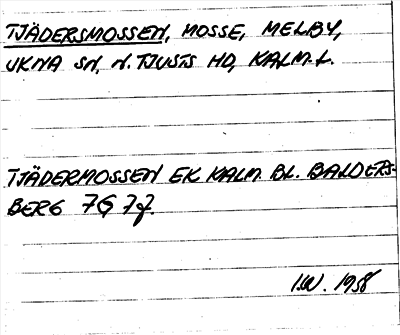 TJÄDERSMOSSEN, MOSSE, MELBY,
UKNA SN, N. TJUSTS HD, KALM. L.
TJÄDERMOSSEN EK KALM. BL. BALDERS-
BERG 7G 7j.
I.W. 1958